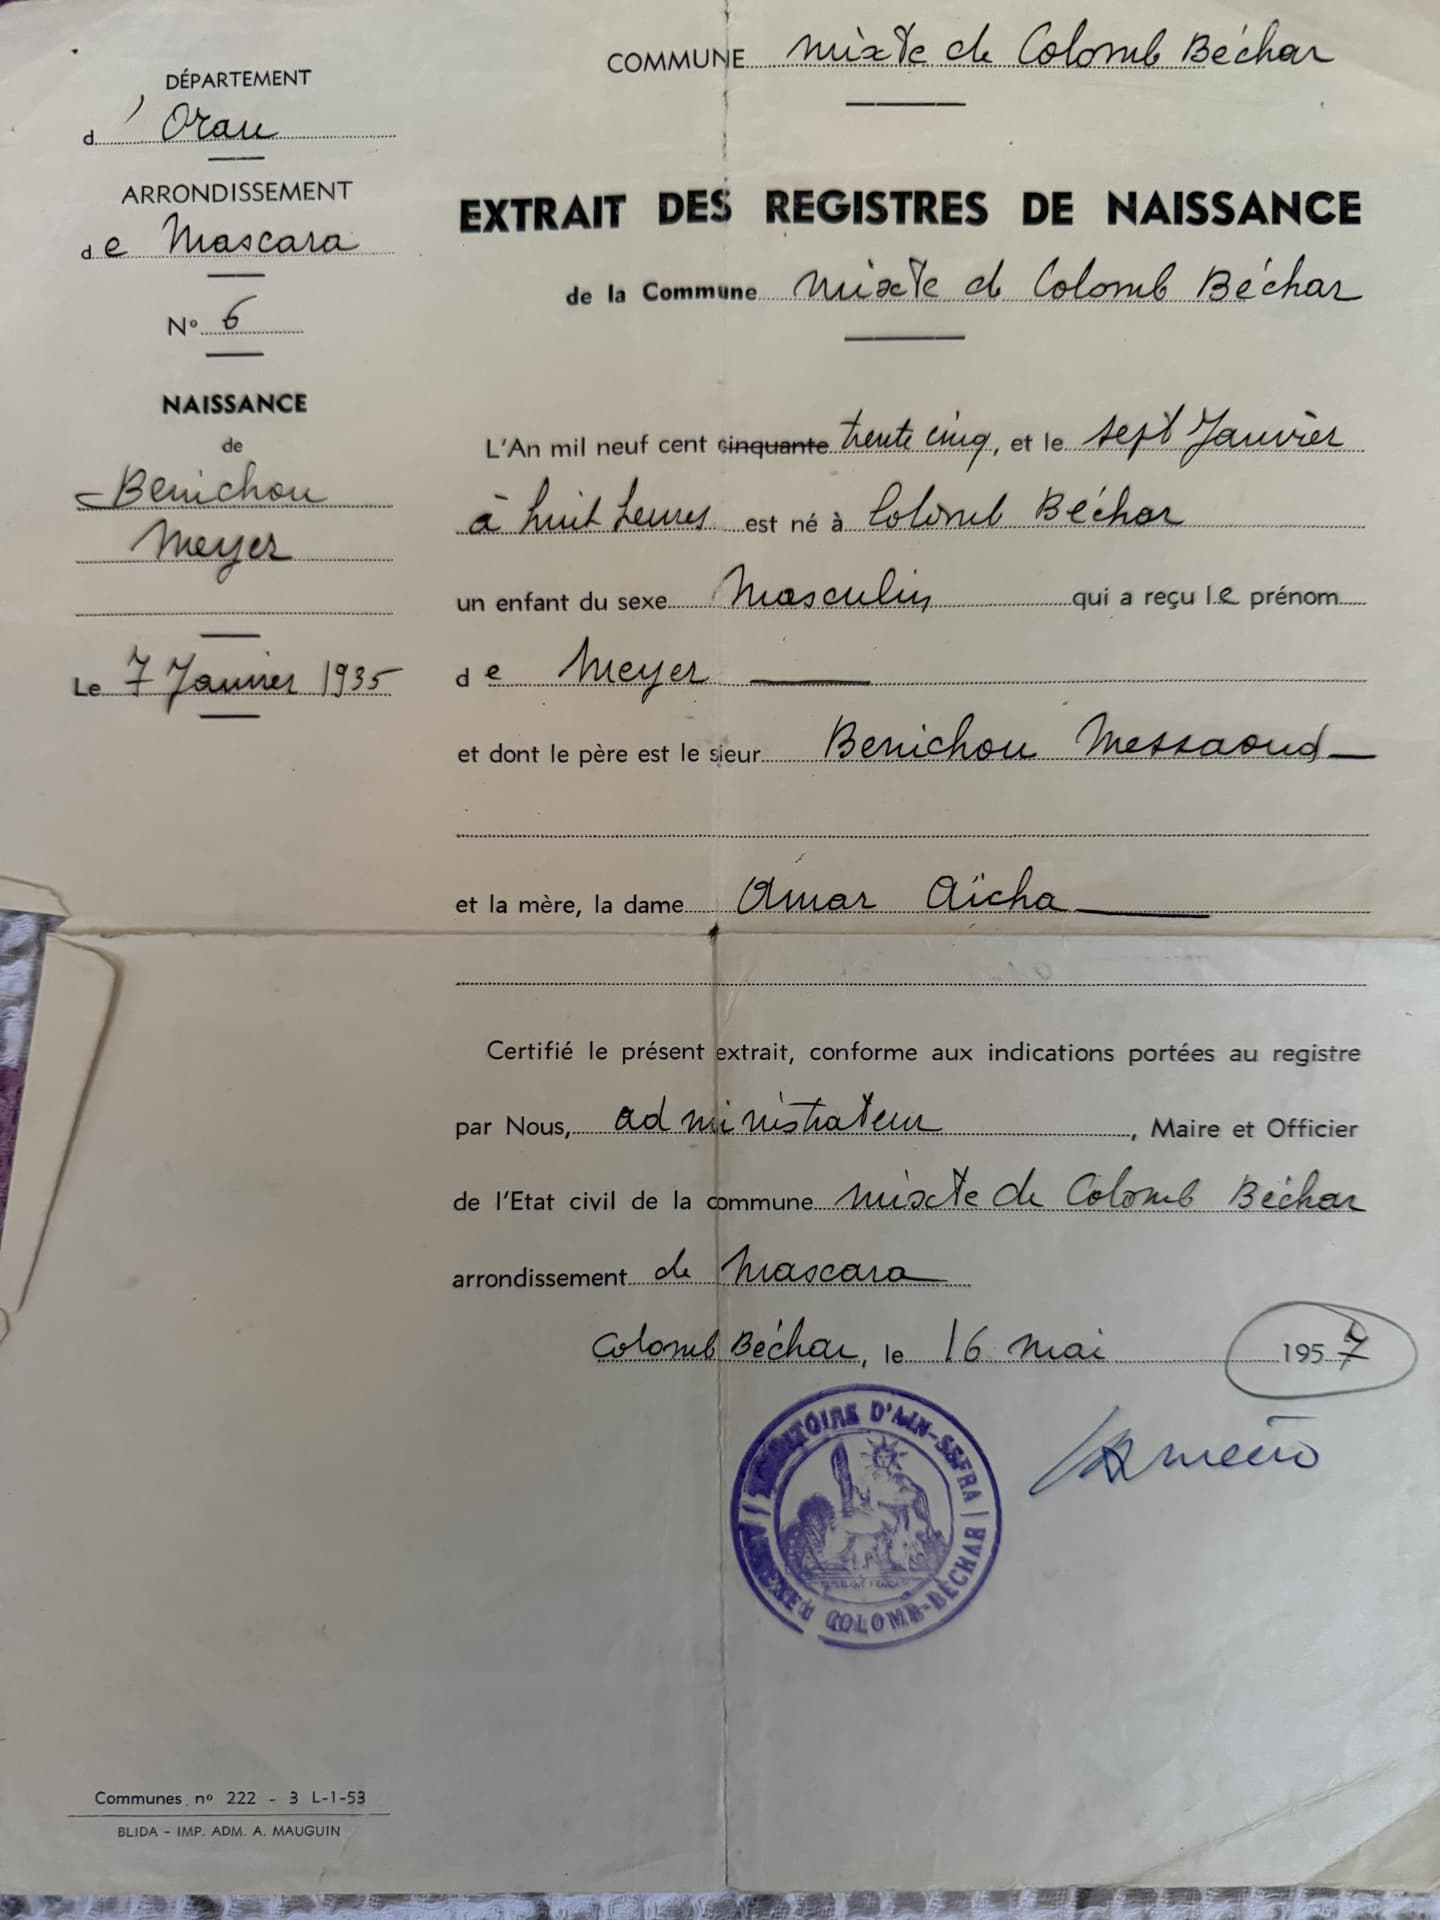 DÉPARTEMENT
d'Oran
ARRONDISSEMENT
de Mascara
N° 6
NAISSANCE
de
Benichou
Meyer
Le 7 Janvier 1935
COMMUNE mixte de Colomb Béchar
EXTRAIT DES REGISTRES DE NAISSANCE
de la Commune mixte d Colomb Béchar
L'An mil neuf cent cinquante trente cinq, et le sept Janvier
à huit heures est né à Colomb Béchar
un enfant du sexe Masculin qui a reçu le prénom
de Meyer
et dont le père est le sieur Benichou Messaoud
et la mère, la dame Amar Aïcha
Certifié le présent extrait, conforme aux indications portées au registre
par Nous, administrateur, Maire et Officier
de l'Etat civil de la commune mixte de Colomb Béchar
arrondissement de Mascara
Colomb Béchar, le 16 mai 1957
TERRITOIRE D'AIN-SEFRA
ANNEXE COLOMB-BÉCHAR
Communes nº 222 - 3 L-1-53
BLIDA - IMP. ADM. A. MAUGUIN